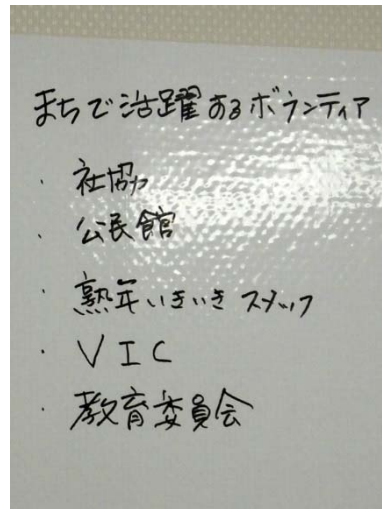 まちで活躍するボランティア
・社協
・公民館
・熟年いきいきスタッフ
・VIC
・教育委員会